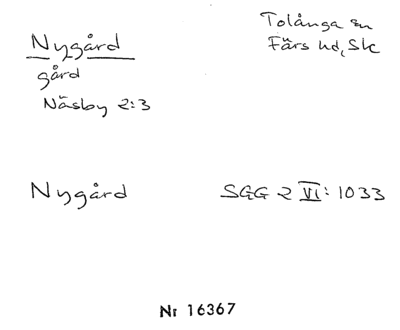 Nygård
gård
Näsby 2:3
Tolånga sn
Färs hd, Sk
Nygård
SGG 2 VI: 1033
Nr 16367